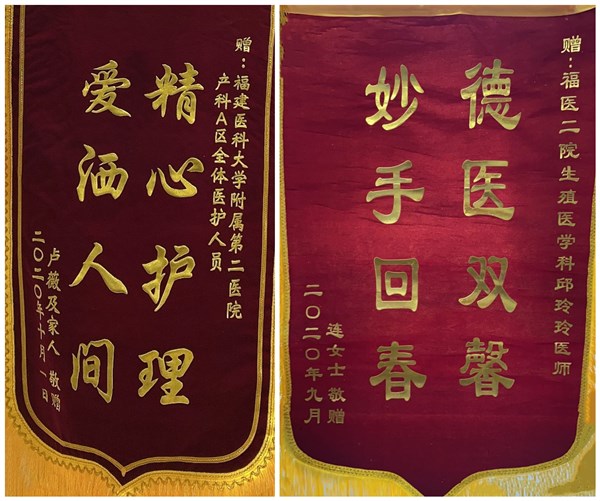 赠：福建医科大学附属第二医院
产科A区全体医护人员
精心护理
爱洒人间
卢薇及家人 敬赠
二〇二〇年十月一日
赠：福医二院生殖医学科邱玲玲医师
德医双馨
妙手回春
连女士 敬赠
二〇二〇年九月